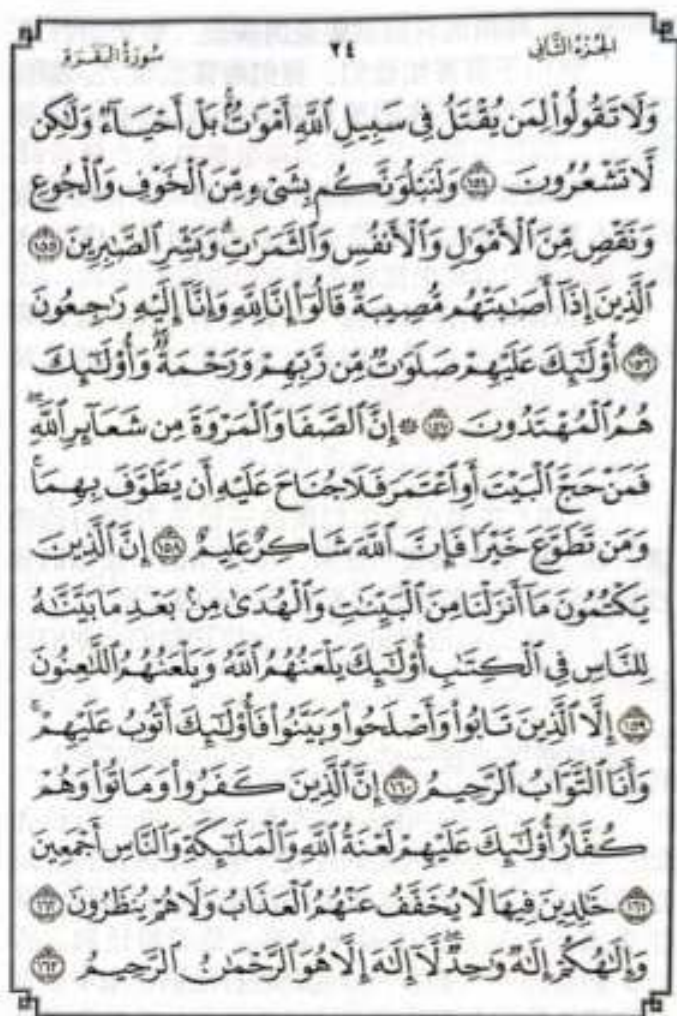 الجزء الثاني ٢٤ سورة البقرة
وَلَا تَقُولُوا۟ لِمَن يُقْتَلُ فِى سَبِيلِ ٱللَّهِ أَمْوَٰتٌۢ ۚ بَلْ أَحْيَآءٌ وَلَٰكِن
لَّا تَشْعُرُونَ ١٥٤ وَلَنَبْلُوَنَّكُم بِشَىْءٍ مِّنَ ٱلْخَوْفِ وَٱلْجُوعِ
وَنَقْصٍ مِّنَ ٱلْأَمْوَٰلِ وَٱلْأَنفُسِ وَٱلثَّمَرَٰتِ ۗ وَبَشِّرِ ٱلصَّٰبِرِينَ ١٥٥
ٱلَّذِينَ إِذَآ أَصَٰبَتْهُم مُّصِيبَةٌ قَالُوٓا۟ إِنَّا لِلَّهِ وَإِنَّآ إِلَيْهِ رَٰجِعُونَ
١٥٦ أُو۟لَٰٓئِكَ عَلَيْهِمْ صَلَوَٰتٌ مِّن رَّبِّهِمْ وَرَحْمَةٌ ۖ وَأُو۟لَٰٓئِكَ
هُمُ ٱلْمُهْتَدُونَ ١٥٧ ۞ إِنَّ ٱلصَّفَا وَٱلْمَرْوَةَ مِن شَعَآئِرِ ٱللَّهِ ۖ
فَمَنْ حَجَّ ٱلْبَيْتَ أَوِ ٱعْتَمَرَ فَلَا جُنَاحَ عَلَيْهِ أَن يَطَّوَّفَ بِهِمَا ۚ
وَمَن تَطَوَّعَ خَيْرًا فَإِنَّ ٱللَّهَ شَاكِرٌ عَلِيمٌ ١٥٨ إِنَّ ٱلَّذِينَ
يَكْتُمُونَ مَآ أَنزَلْنَا مِنَ ٱلْبَيِّنَٰتِ وَٱلْهُدَىٰ مِنۢ بَعْدِ مَا بَيَّنَّٰهُ
لِلنَّاسِ فِى ٱلْكِتَٰبِ أُو۟لَٰٓئِكَ يَلْعَنُهُمُ ٱللَّهُ وَيَلْعَنُهُمُ ٱللَّٰعِنُونَ
١٥٩ إِلَّا ٱلَّذِينَ تَابُوا۟ وَأَصْلَحُوا۟ وَبَيَّنُوا۟ فَأُو۟لَٰٓئِكَ أَتُوبُ عَلَيْهِمْ ۚ
وَأَنَا ٱلتَّوَّابُ ٱلرَّحِيمُ ١٦٠ إِنَّ ٱلَّذِينَ كَفَرُوا۟ وَمَاتُوا۟ وَهُمْ
كُفَّارٌ أُو۟لَٰٓئِكَ عَلَيْهِمْ لَعْنَةُ ٱللَّهِ وَٱلْمَلَٰٓئِكَةِ وَٱلنَّاسِ أَجْمَعِينَ
١٦١ خَٰلِدِينَ فِيهَا لَا يُخَفَّفُ عَنْهُمُ ٱلْعَذَابُ وَلَا هُمْ يُنظَرُونَ ١٦٢
وَإِلَٰهُكُمْ إِلَٰهٌ وَٰحِدٌ ۖ لَّآ إِلَٰهَ إِلَّا هُوَ ٱلرَّحْمَٰنُ ٱلرَّحِيمُ ١٦٣